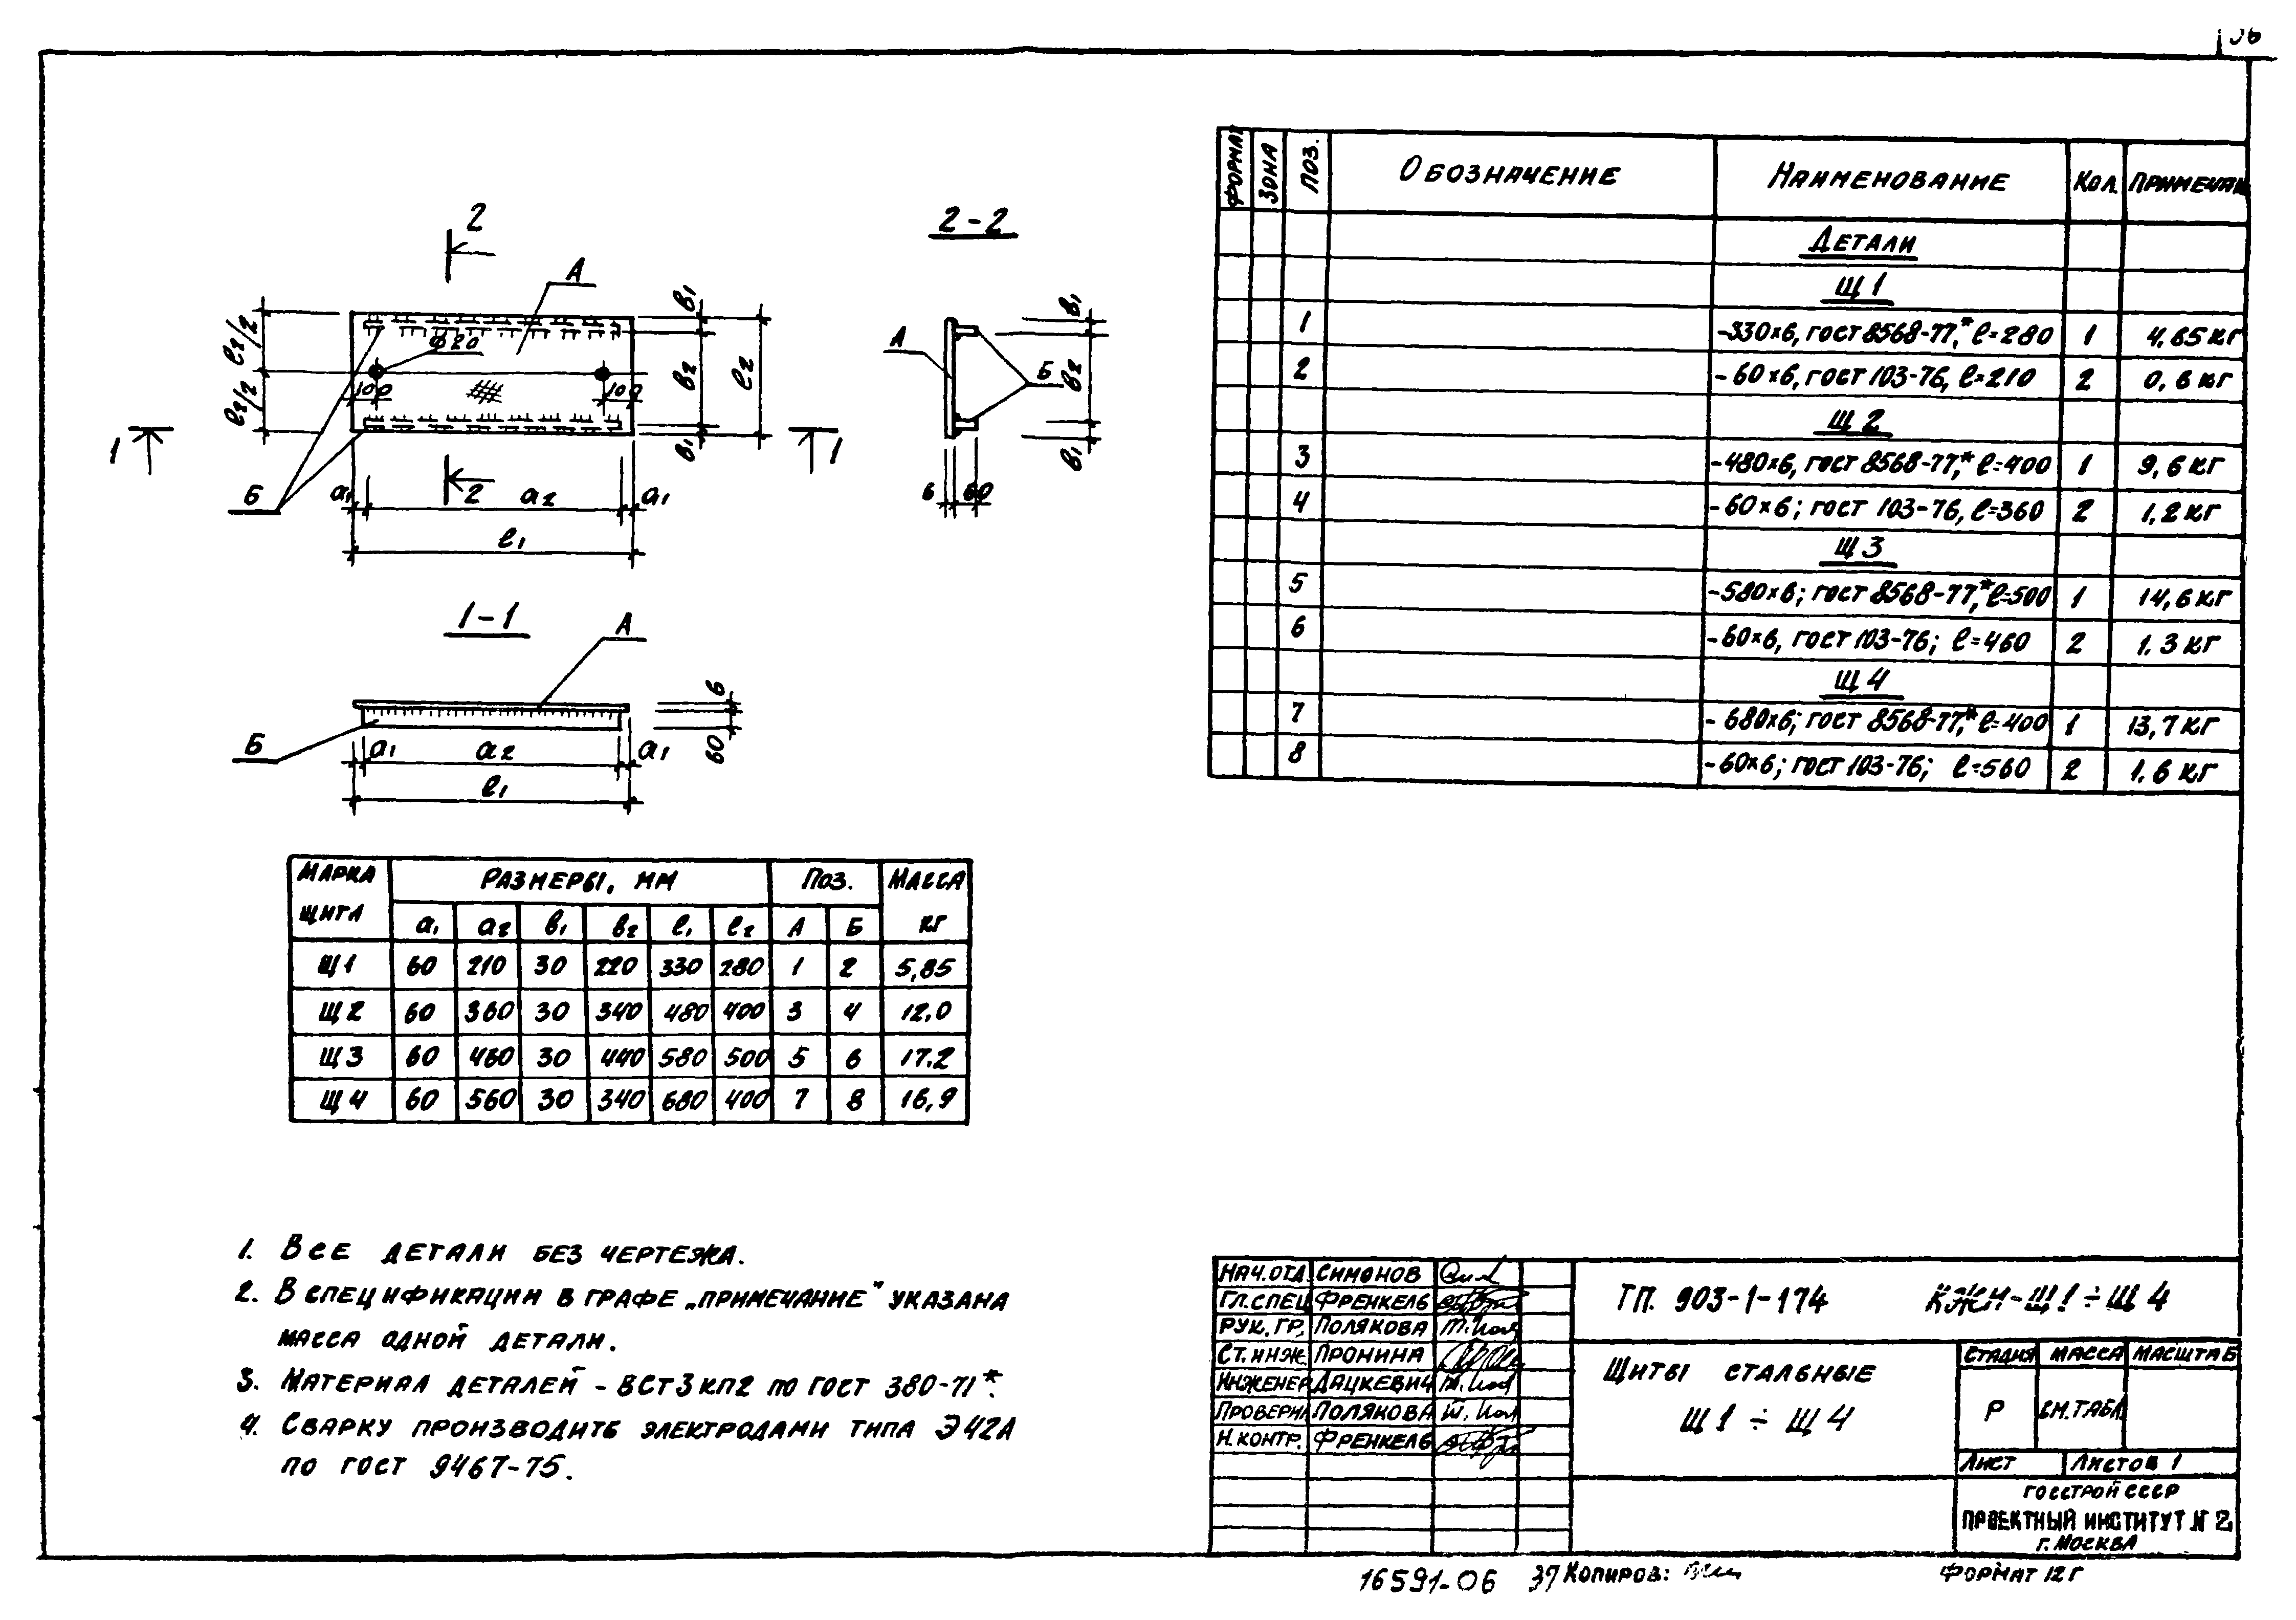 36
2
2-2
А
в₁
в₁
ℓ₂/2
ф20
А
Б
в₂
ℓ₂
в₂
ℓ₂/2
100
100
1
1
в₁
в₁
Б
а₁
2
а₂
а₁
6
60
ℓ₁
1-1
А
6
Б
а₁
а₂
а₁
60
ℓ₁
ФОРМАТ ЗОНА ПОЗ. ОБОЗНАЧЕНИЕ НАИМЕНОВАНИЕ КОЛ. ПРИМЕЧАН
ДЕТАЛИ
Щ1
1 -330×6, ГОСТ 8568-77,* ℓ=280 1 4,65 КГ
2 -60×6, ГОСТ 103-76, ℓ=210 2 0,6 КГ
Щ2
3 -480×6, ГОСТ 8568-77,* ℓ=400 1 9,6 КГ
4 -60×6; ГОСТ 103-76, ℓ=360 2 1,2 КГ
Щ3
5 -580×6; ГОСТ 8568-77,* ℓ=500 1 14,6 КГ
6 -60×6, ГОСТ 103-76; ℓ=460 2 1.3 КГ
Щ4
7 -680×6; ГОСТ 8568-77,* ℓ=400 1 13,7 КГ
8 -60×6; ГОСТ 103-76; ℓ=560 2 1.6 КГ
МАРКА ЩИТА РАЗМЕРЫ, ММ ПОЗ. МАССА КГ
а₁ а₂ в₁ в₂ ℓ₁ ℓ₂ А Б
Щ1 60 210 30 220 330 280 1 2 5,85
Щ2 60 360 30 340 480 400 3 4 12,0
Щ3 60 460 30 440 580 500 5 6 17.2
Щ4 60 560 30 340 680 400 7 8 16,9
1. ВСЕ ДЕТАЛИ БЕЗ ЧЕРТЕЖА.
2. В СПЕЦИФИКАЦИИ В ГРАФЕ „ПРИМЕЧАНИЕ" УКАЗАНА
МАССА ОДНОЙ ДЕТАЛИ.
3. МАТЕРИАЛ ДЕТАЛЕЙ - ВСТ3КП2 ПО ГОСТ 380-71*.
4. СВАРКУ ПРОИЗВОДИТЬ ЭЛЕКТРОДАМИ ТИПА Э42А
ПО ГОСТ 9467-75.
НАЧ.ОТД. СИМОНОВ
ГЛ.СПЕЦ ФРЕНКЕЛЬ
РУК. ГР. ПОЛЯКОВА
СТ.ИНЖ. ПРОНИНА
ИНЖЕНЕР ДАЦКЕВИЧ
ПРОВЕРИЛ ПОЛЯКОВА
Н.КОНТР. ФРЕНКЕЛЬ
ТП. 903-1-174 КЖИ-Щ1÷Щ4
ЩИТЫ СТАЛЬНЫЕ
Щ1 ÷ Щ4
СТАДИЯ МАССА МАСШТАБ
Р СМ.ТАБЛ.
ЛИСТ ЛИСТОВ 1
ГОССТРОЙ СССР
ПРОЕКТНЫЙ ИНСТИТУТ № 2
Г. МОСКВА
16591-06 37 КОПИРОВ: ФОРМАТ 12Г